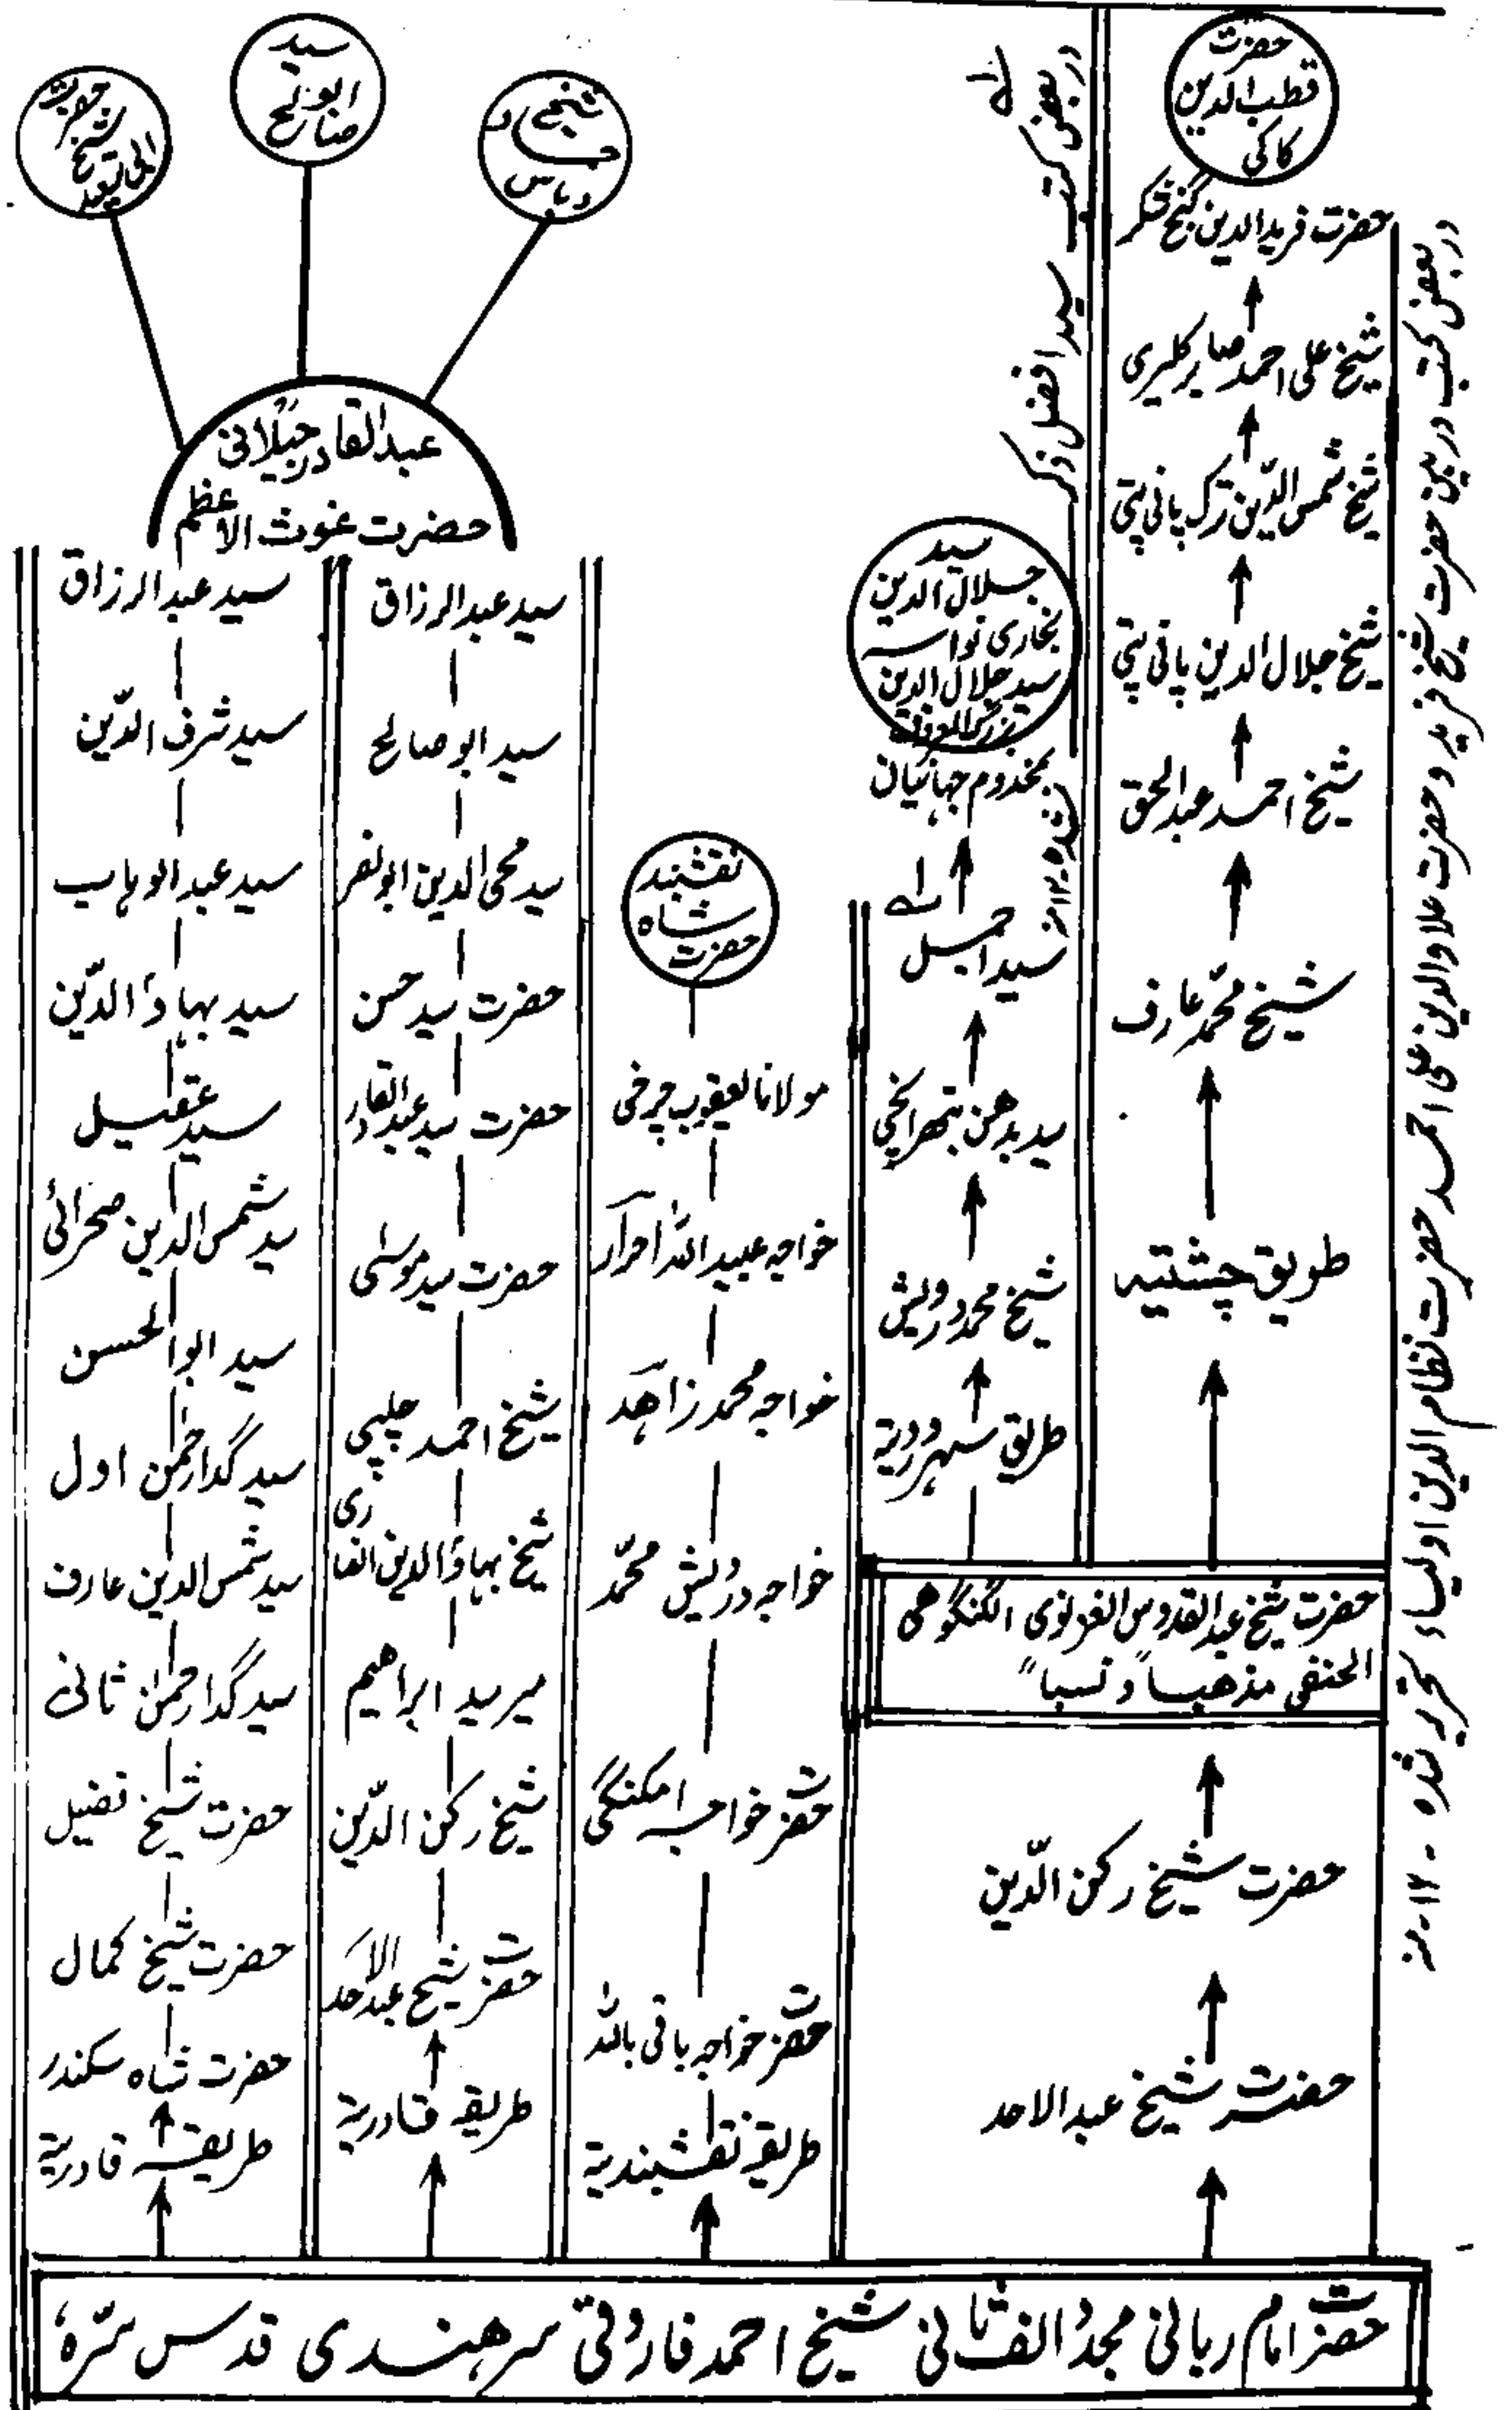 حضرت
قطب الدین
کاکی
حضرت فرید الدین گنج شکر
شیخ علی احمد صابر کلیری
شیخ شمس الدّین ترک پانی پتی
شیخ جلال الدین پانی پتی
شیخ احمد عبدالحق
شیخ محمّد عارف
طریق چشتیہ
در بعض کتب درین حضرت شیخ فرید و حضرت علاوالدین علی احمد حضرت نظام الدین اولیاء تحریر شدہ - ۱۲
در بعض کتب سید افضل ذکر
سید
جلال الدین
بخاری نواسہ
سید جلال الدین
مخدوم جہانیان
سید اجمل
سید بدھن بھرائچی
شیخ محمد درویش
طریق سہروردیہ
حضرت شیخ عبدالقدوس الغزنوی الگنگوھی
الحنفی مذھباً و نسباً
حضرت شیخ رکن الدّین
حضرت شیخ عبدالاحد
نقشبند
شاہ
حضرت
مولانا یعقوب چرخی
خواجہ عبیداللہ احرار
خواجہ محمد زاھد
خواجہ درویش محمّد
حضرت خواجہ امکنگی
حضرت خواجہ باقی باللہ
طریقۂ نقشبندیہ
شیخ حماد
دباس
سید
ابو صالح
حضرت
شیخ
عبدالقادر جیلانی
حضرت غوث الاعظم
سید عبدالرزاق
سید ابو صالح
سید محی الدین ابونصر
حضرت سید حسن
حضرت سید عبدالقادر
حضرت سید موسٰی
شیخ احمد چلپی
شیخ بہاؤالدین انصاری
میر سید ابراھیم
شیخ رکن الدّین
حضرت شیخ عبدالاحد
طریقہ قادریہ
سید عبدالرزاق
سید شرف الدّین
سید عبدالوہاب
سید بہاؤ الدّین
سید عقیل
سید شمس الدین صحرائی
سید ابوالحسن
سید گدارحمٰن اول
سید شمس الدین عارف
سید گدارحمٰن ثانی
حضرت شیخ فضیل
حضرت شیخ کمال
حضرت شاہ سکندر
طریقہ قادریہ
حضرت امام ربانی مجدد الف ثانی شیخ احمد فاروقی سرھندی قدس سرّہ